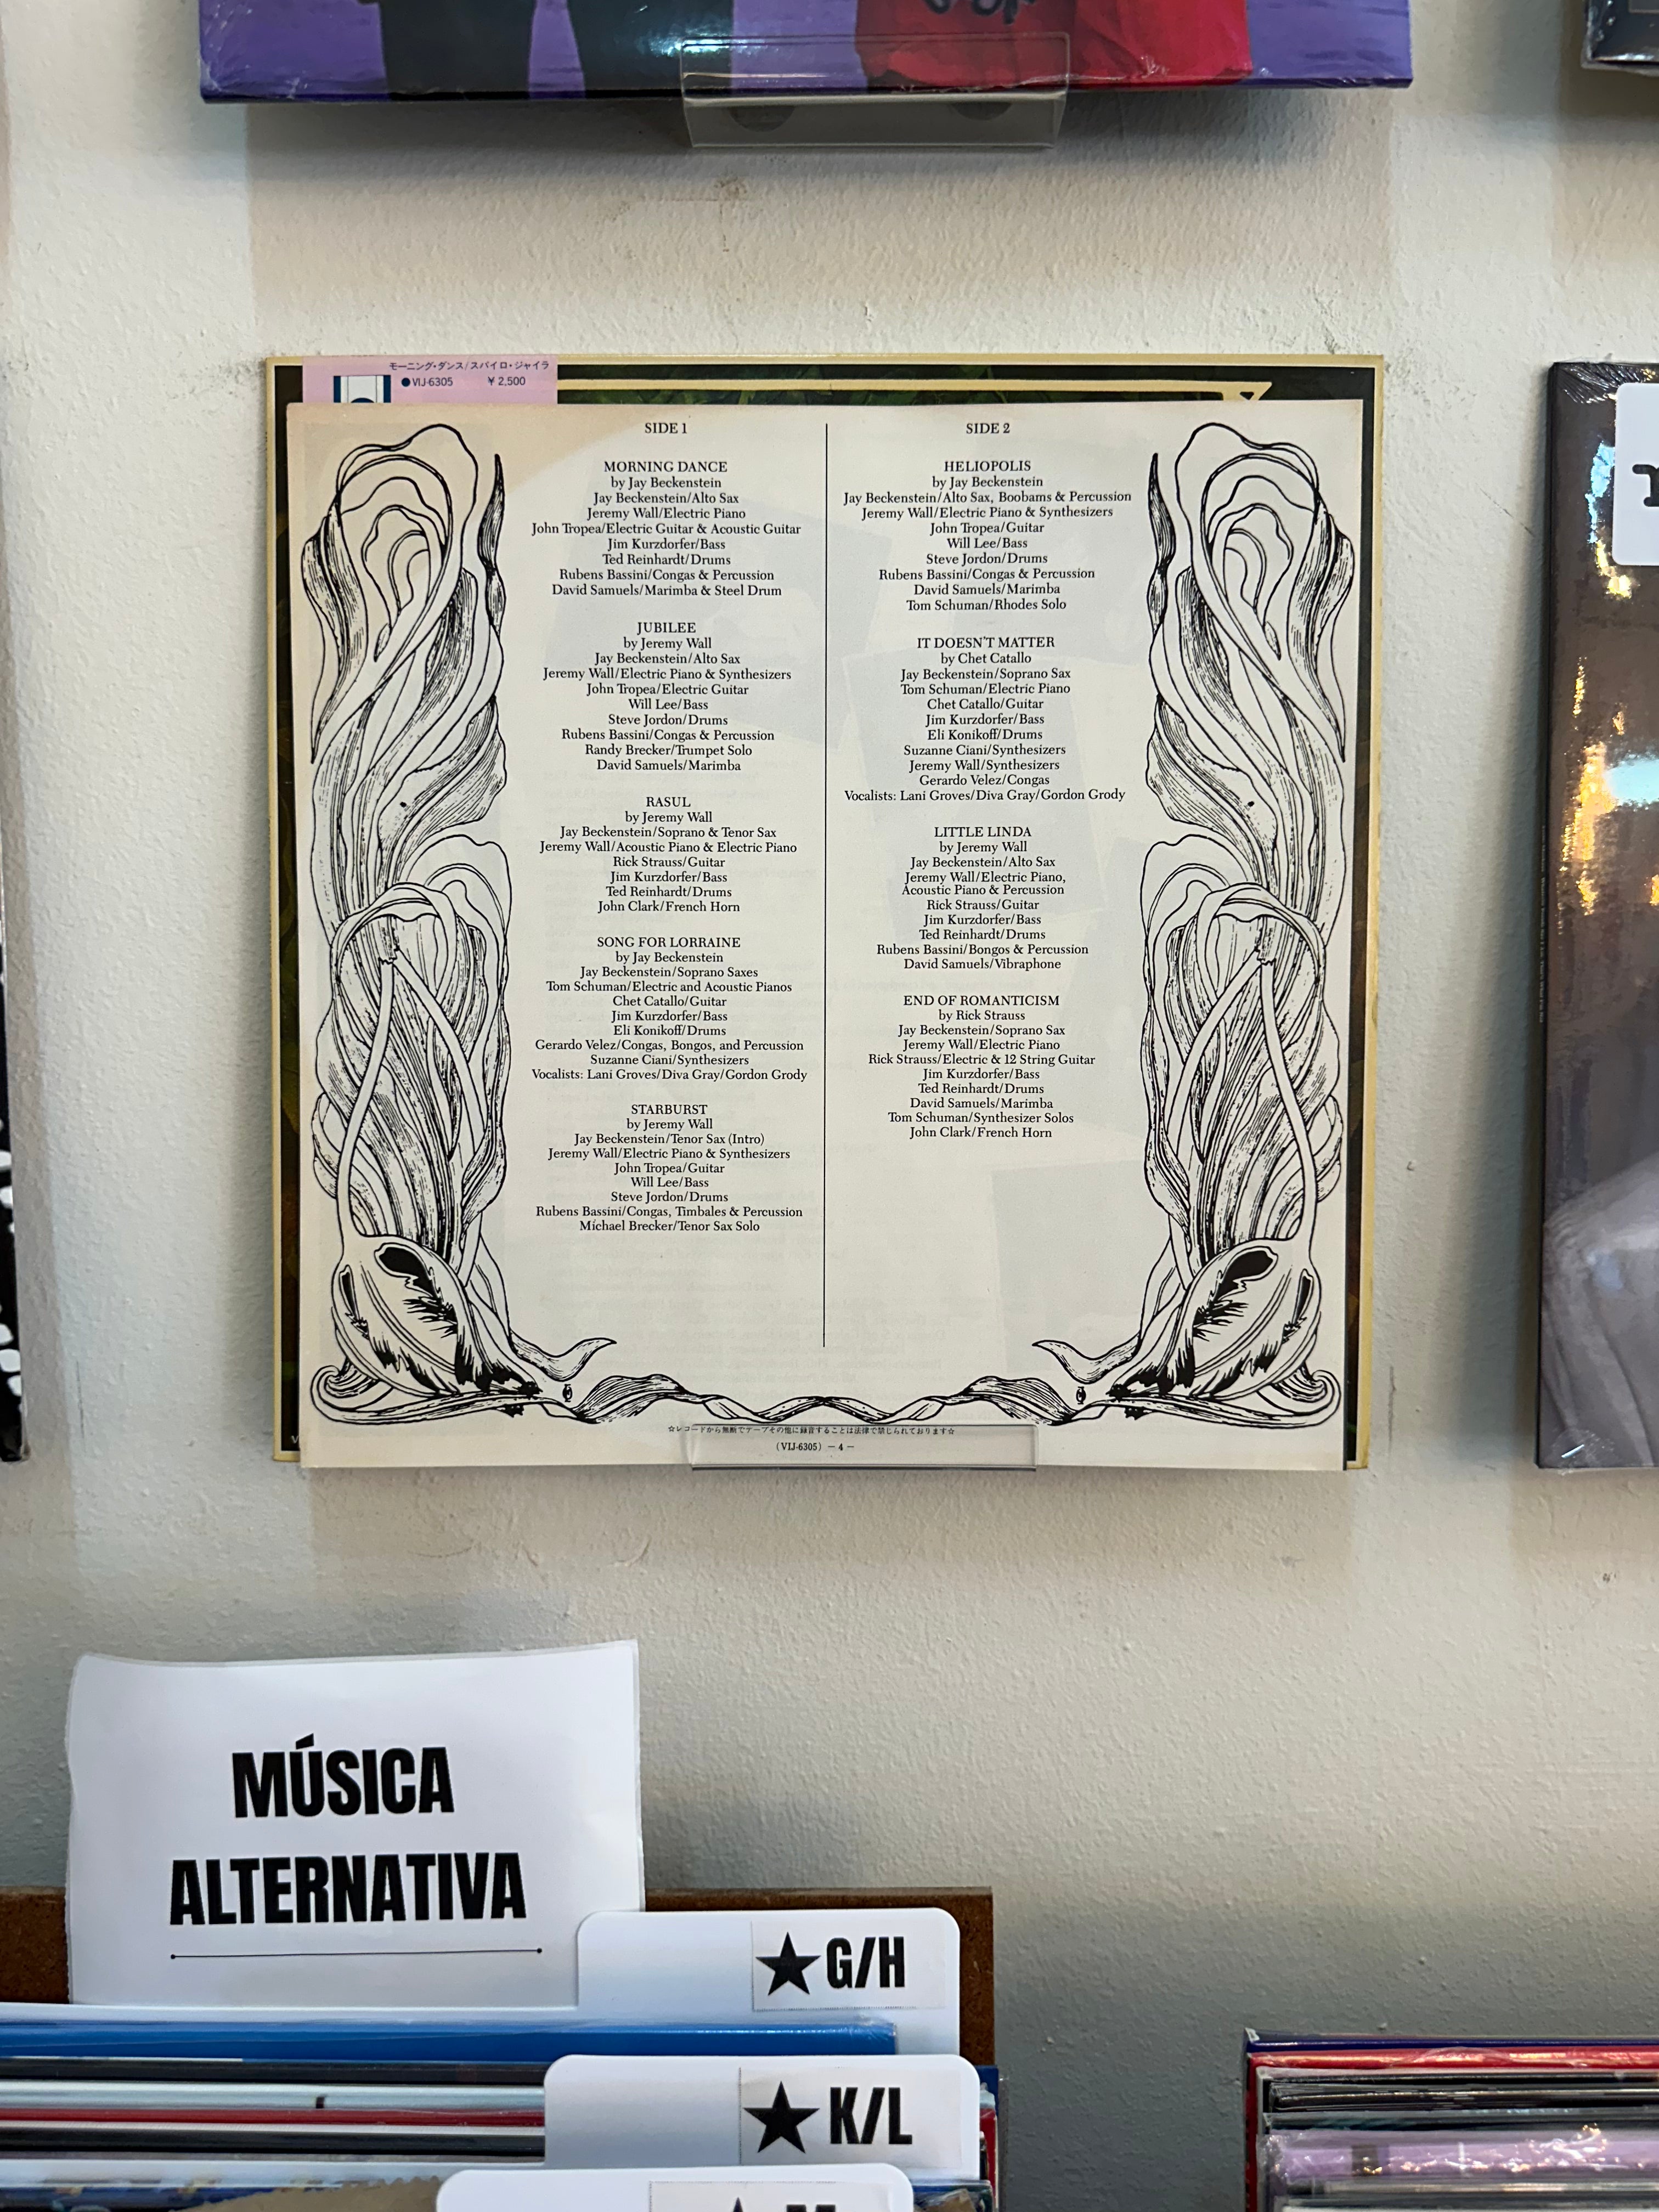 モーニング・ダンス/スパイロ・ジャイラ
●VIJ-6305 ¥2,500
SIDE 1
MORNING DANCE
by Jay Beckenstein
Jay Beckenstein/Alto Sax
Jeremy Wall/Electric Piano
John Tropea/Electric Guitar & Acoustic Guitar
Jim Kurzdorfer/Bass
Ted Reinhardt/Drums
Rubens Bassini/Congas & Percussion
David Samuels/Marimba & Steel Drum
JUBILEE
by Jeremy Wall
Jay Beckenstein/Alto Sax
Jeremy Wall/Electric Piano & Synthesizers
John Tropea/Electric Guitar
Will Lee/Bass
Steve Jordon/Drums
Rubens Bassini/Congas & Percussion
Randy Brecker/Trumpet Solo
David Samuels/Marimba
RASUL
by Jeremy Wall
Jay Beckenstein/Soprano & Tenor Sax
Jeremy Wall/Acoustic Piano & Electric Piano
Rick Strauss/Guitar
Jim Kurzdorfer/Bass
Ted Reinhardt/Drums
John Clark/French Horn
SONG FOR LORRAINE
by Jay Beckenstein
Jay Beckenstein/Soprano Saxes
Tom Schuman/Electric and Acoustic Pianos
Chet Catallo/Guitar
Jim Kurzdorfer/Bass
Eli Konikoff/Drums
Gerardo Velez/Congas, Bongos, and Percussion
Suzanne Ciani/Synthesizers
Vocalists: Lani Groves/Diva Gray/Gordon Grody
STARBURST
by Jeremy Wall
Jay Beckenstein/Tenor Sax (Intro)
Jeremy Wall/Electric Piano & Synthesizers
John Tropea/Guitar
Will Lee/Bass
Steve Jordon/Drums
Rubens Bassini/Congas, Timbales & Percussion
Michael Brecker/Tenor Sax Solo
SIDE 2
HELIOPOLIS
by Jay Beckenstein
Jay Beckenstein/Alto Sax, Boobams & Percussion
Jeremy Wall/Electric Piano & Synthesizers
John Tropea/Guitar
Will Lee/Bass
Steve Jordon/Drums
Rubens Bassini/Congas & Percussion
David Samuels/Marimba
Tom Schuman/Rhodes Solo
IT DOESN'T MATTER
by Chet Catallo
Jay Beckenstein/Soprano Sax
Tom Schuman/Electric Piano
Chet Catallo/Guitar
Jim Kurzdorfer/Bass
Eli Konikoff/Drums
Suzanne Ciani/Synthesizers
Jeremy Wall/Synthesizers
Gerardo Velez/Congas
Vocalists: Lani Groves/Diva Gray/Gordon Grody
LITTLE LINDA
by Jeremy Wall
Jay Beckenstein/Alto Sax
Jeremy Wall/Electric Piano,
Acoustic Piano & Percussion
Rick Strauss/Guitar
Jim Kurzdorfer/Bass
Ted Reinhardt/Drums
Rubens Bassini/Bongos & Percussion
David Samuels/Vibraphone
END OF ROMANTICISM
by Rick Strauss
Jay Beckenstein/Soprano Sax
Jeremy Wall/Electric Piano
Rick Strauss/Electric & 12 String Guitar
Jim Kurzdorfer/Bass
Ted Reinhardt/Drums
David Samuels/Marimba
Tom Schuman/Synthesizer Solos
John Clark/French Horn
☆レコードから無断でテープその他に録音することは法律で禁じられております☆
(VIJ-6305) — 4 —
MÚSICA
ALTERNATIVA
★G/H
★K/L